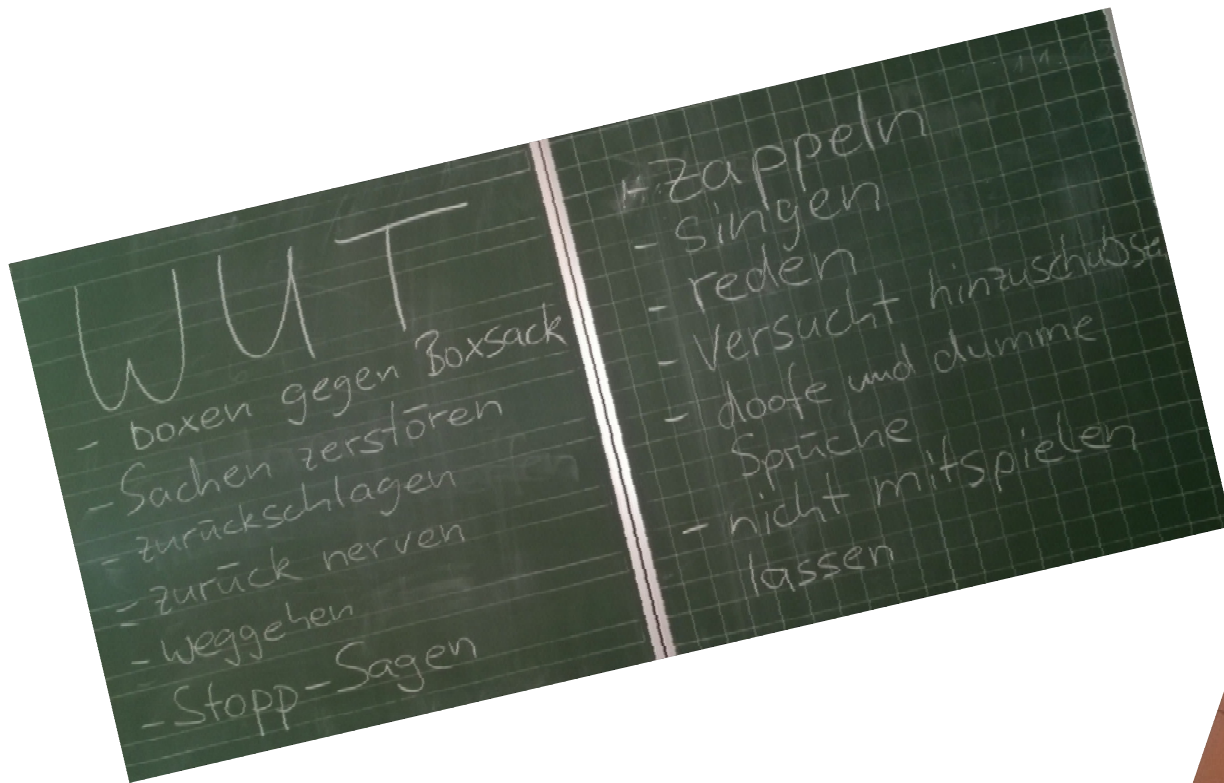 WUT
- boxen gegen Boxsack
- Sachen zerstören
- zurückschlagen
- zurück nerven
- weggehen
- Stopp-Sagen
- zappeln
- singen
- reden
- versucht hinzuschubse
- doofe und dumme
Sprüche
- nicht mitspielen
lassen